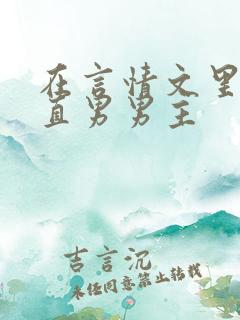 在言情文里
直男男主
吉言沉
未经同意禁止转载